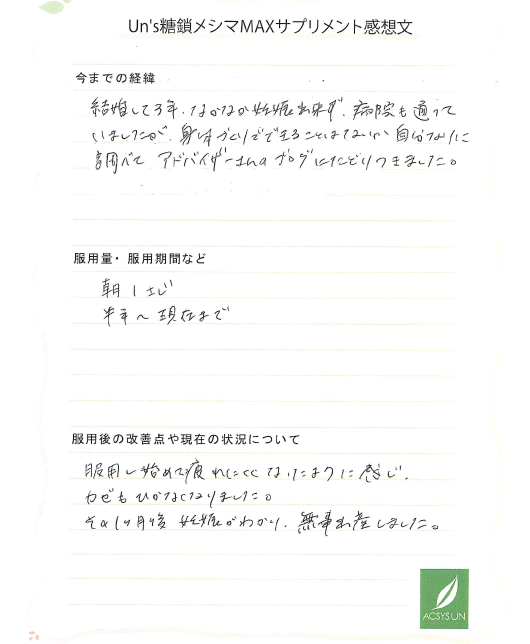 Un's糖鎖メシマMAXサプリメント感想文
今までの経緯
結婚して3年、なかなか妊娠出来ず、病院も通って
いましたが、身体づくりでできることはないか自分なりに
調べて アドバイザーさんのブログにたどりつきました。
服用量・服用期間など
朝1さじ
半年〜現在まで
服用後の改善点や現在の状況について
服用し始めて疲れにくくなったように感じ、
カゼもひかなくなりました。
その1ヶ月後 妊娠がわかり、無事出産しました。
ACSYSUN